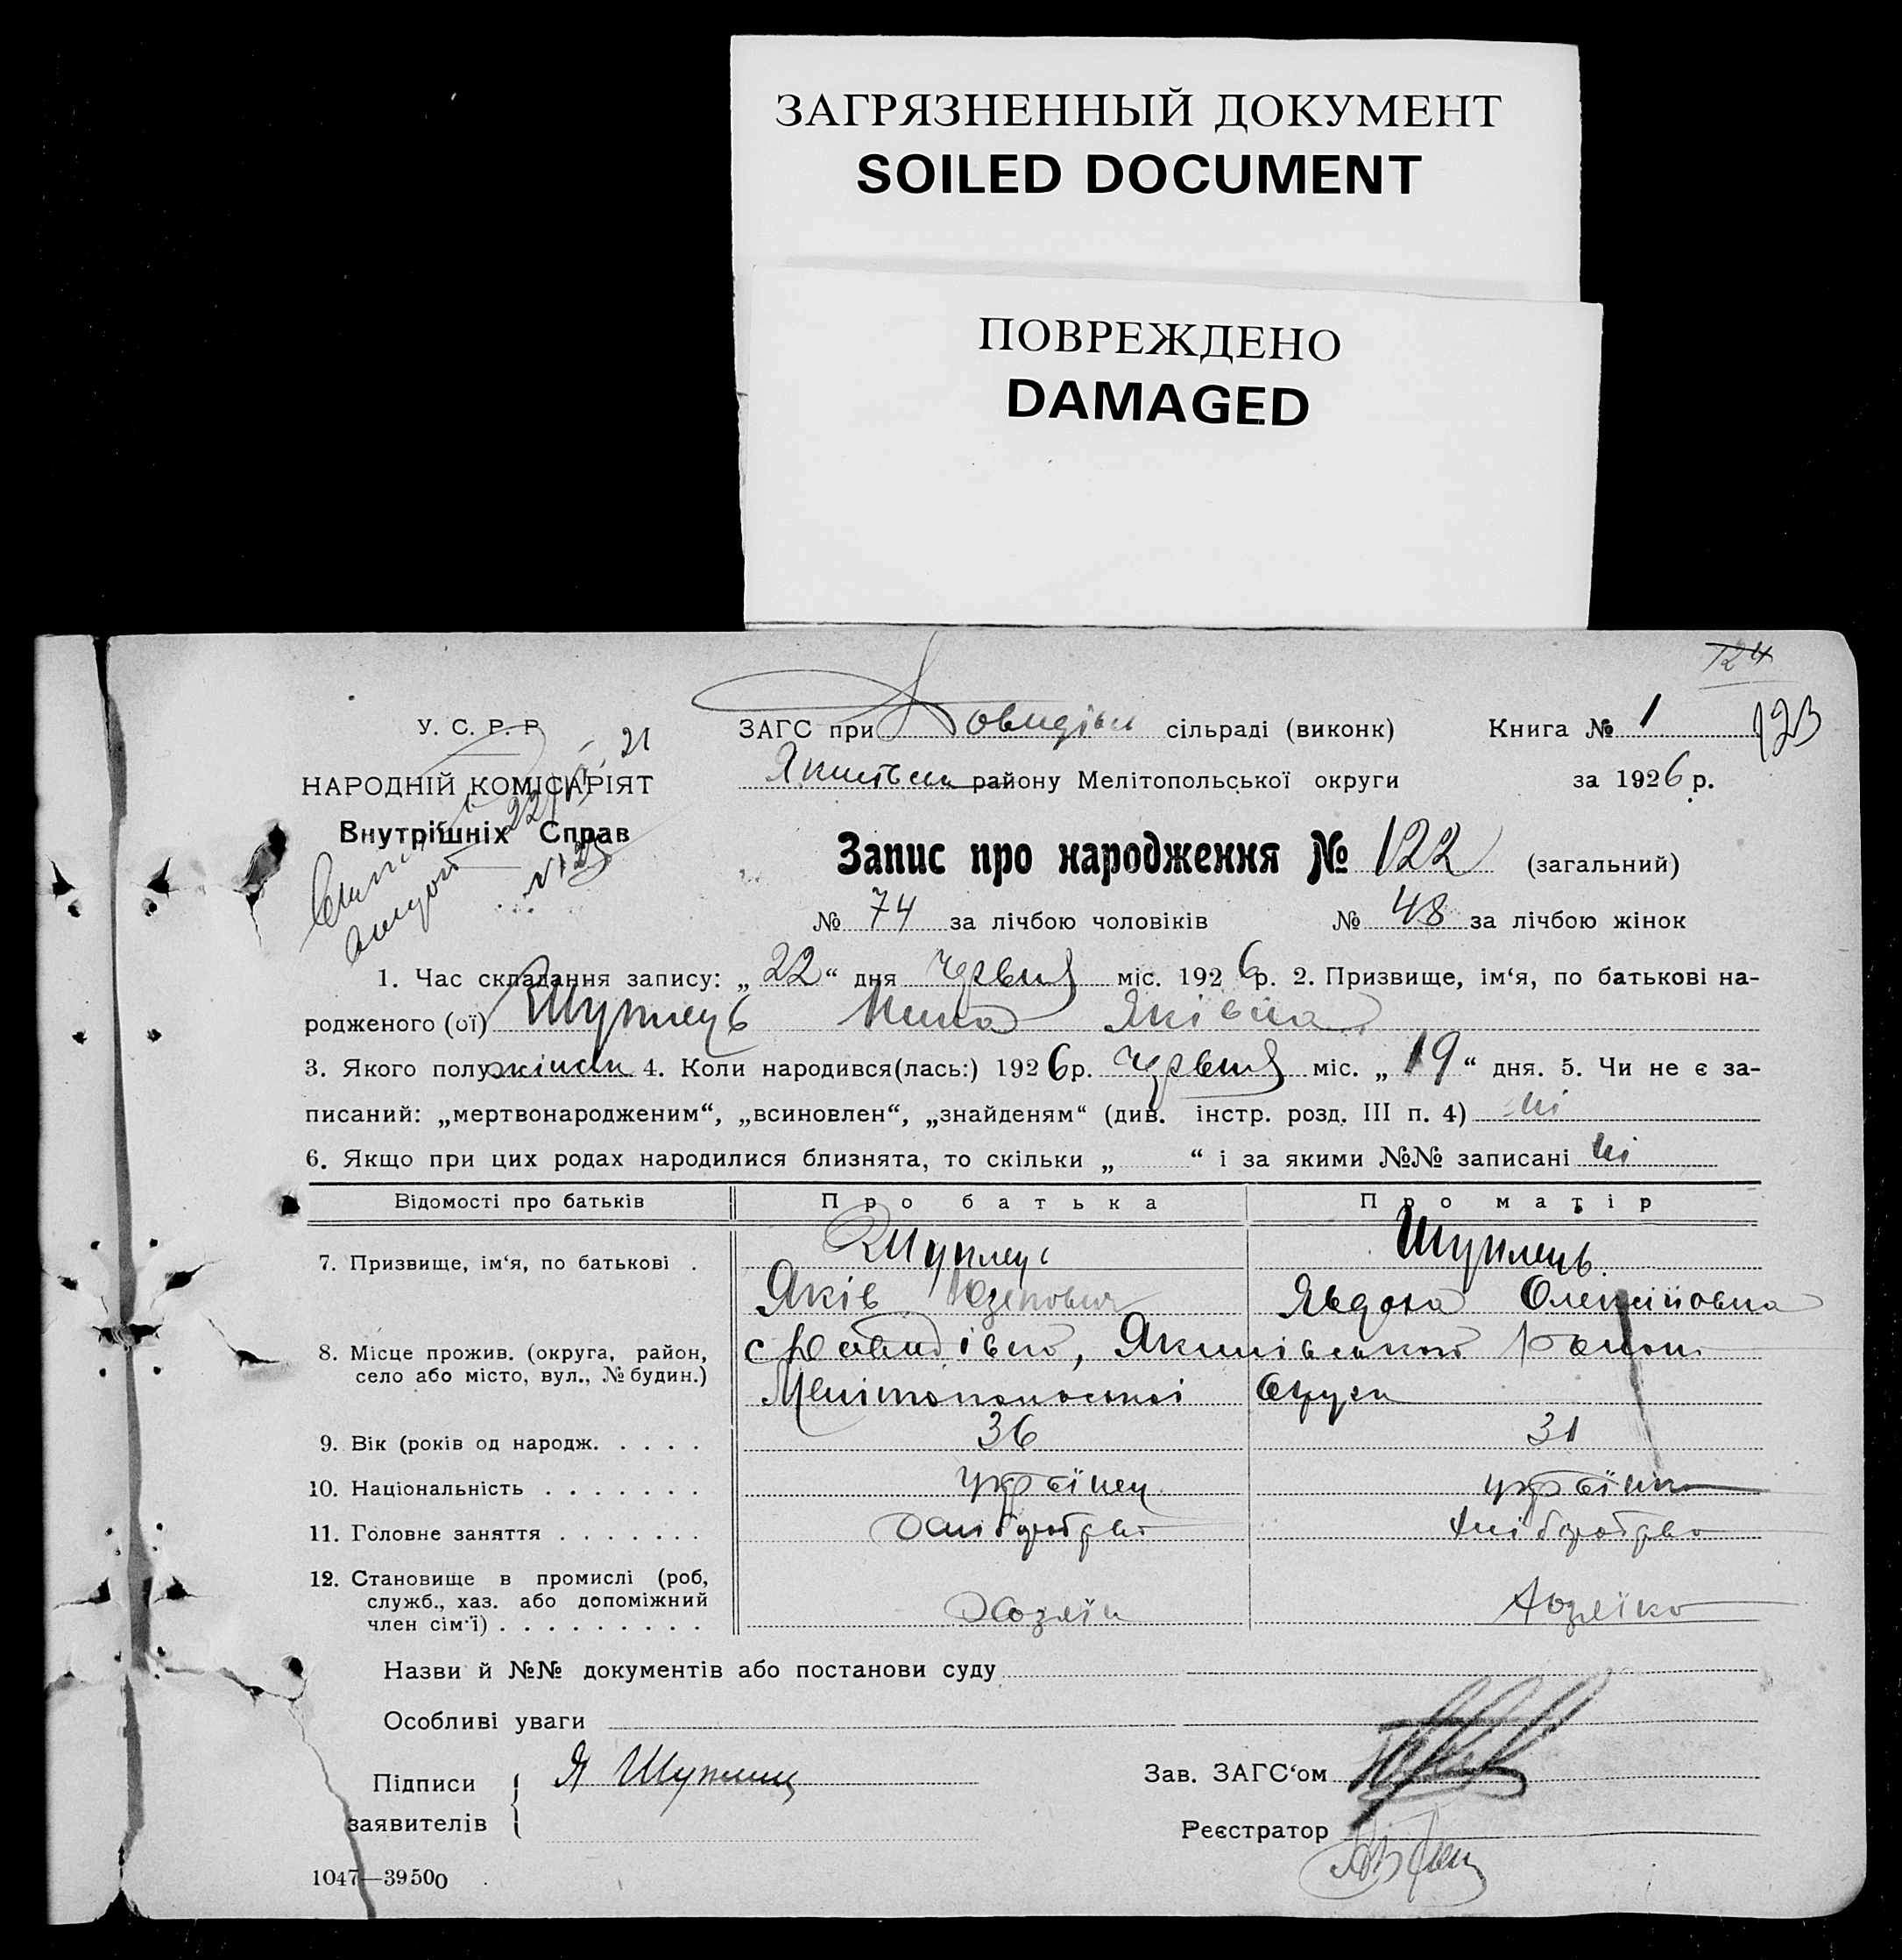 ЗАГРЯЗНЕННЫЙ ДОКУМЕНТ
SOILED DOCUMENT
ПОВРЕЖДЕНО
DAMAGED
124
123
У. С. Р. Р.
НАРОДНІЙ КОМІСАРІЯТ
Внутрішніх Справ
ЗАГС при Довидівск сільраді (виконк) Книга № 1
Якимівськ району Мелітопольської округи за 1926 р.
Запис про народження № 122 (загальний)
№ 74 за лічбою чоловіків № 48 за лічбою жінок
1. Час складання запису: „22“ дня червня міс. 1926 р. 2. Призвище, ім‘я, по батькові на-
родженого (ої) Яківна
3. Якого полу жіноч 4. Коли народився(лась:) 1926 р. червня міс. „19“ дня. 5. Чи не є за-
писаний: „мертвонародженим“, „всиновлен“, „знайденям“ (див. інстр. розд. III п. 4) ні
6. Якщо при цих родах народилися близнята, то скільки „ “ і за якими №№ записані ні
Відомості про батьків Про батька Про матір
7. Призвище, ім‘я, по батькові .
Яків Юзепович Явдоха Олексіївна
8. Місце прожив. (округа, район, село або місто, вул., № будин.) с Давидівка, Якимівського району
Мелітопольської Округи
9. Вік (років од народж. . . . . 36 31
10. Національність . . . . . . . українец українка
11. Головне заняття . . . . . . . хліборобство хліборобство
12. Становище в промислі (роб, служб., хаз. або допоміжний член сім‘ї) . . . . . . . . . Хозяїн Хозяїка
Назви й №№ документів або постанови суду
Особливі уваги
Підписи
заявителів
Зав. ЗАГС‘ом
Реєстратор
1047—39500